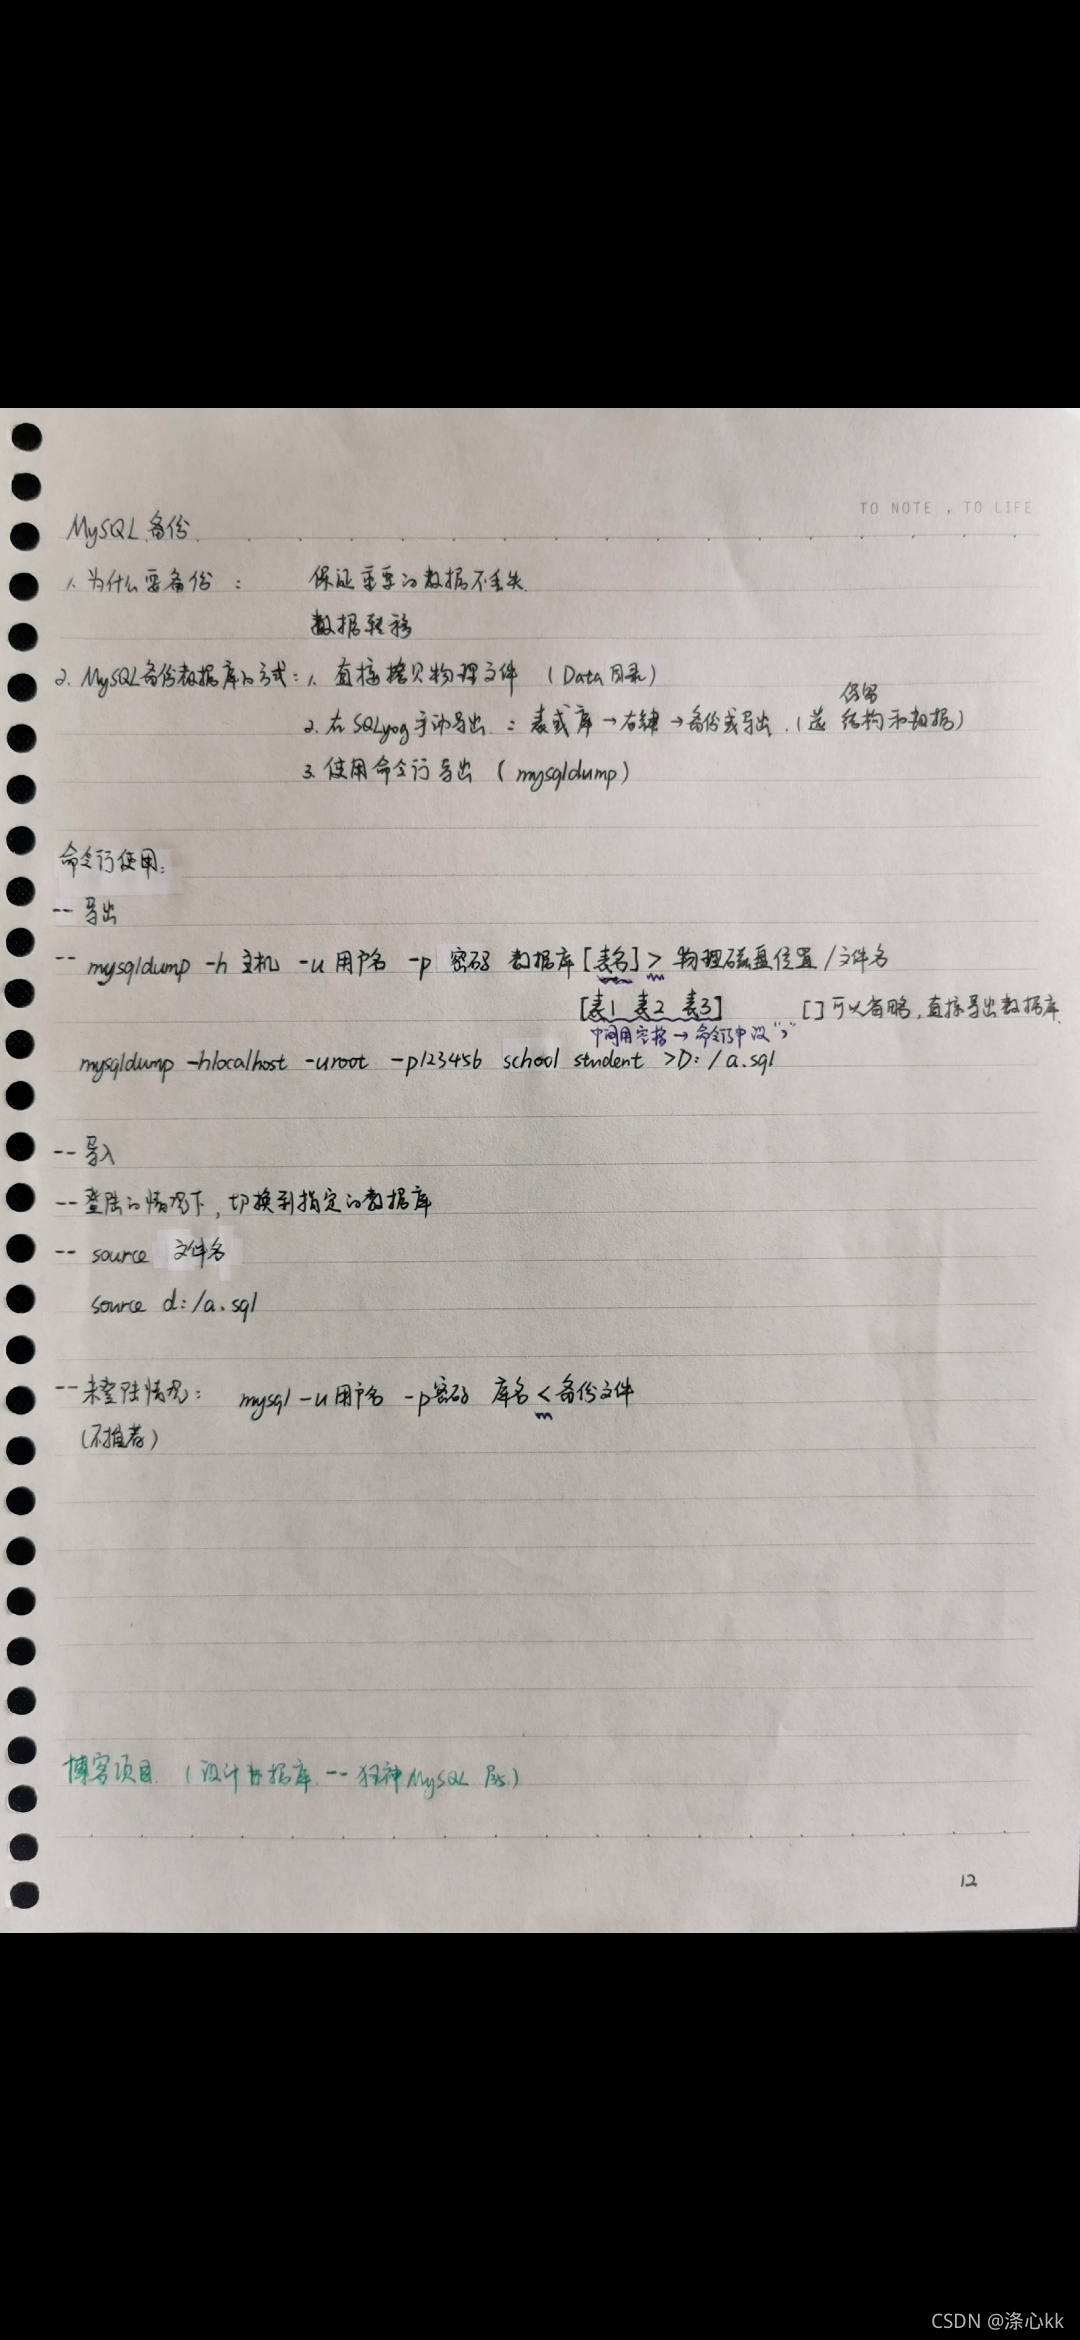 TO NOTE , TO LIFE
MySQL备份.
1. 为什么要备份 : 保证重要的数据不丢失.
数据转移
2. MySQL备份数据库的方式: 1. 直接拷贝物理文件 (Data目录)
保留
2. 在SQLyog手动导出 : 表或库→右键→备份或导出. (选 结构和数据)
3. 使用命令行导出 (mysqldump)
命令行使用:
-- 导出
-- mysqldump -h 主机 -u 用户名 -p 密码 数据库 [表名] > 物理磁盘位置/文件名
[表1 表2 表3] []可以省略,直接导出数据库.
中间用空格→命令行中没","
mysqldump -hlocalhost -uroot -p123456 school student >D:/a.sql
-- 导入
-- 登陆的情况下, 切换到指定的数据库
-- source 文件名
source d:/a.sql
-- 未登陆情况: mysql -u用户名 -p密码 库名 < 备份文件
(不推荐)
博客项目. (设计数据库. -- 狂神MySQL
12
CSDN @涤心kk